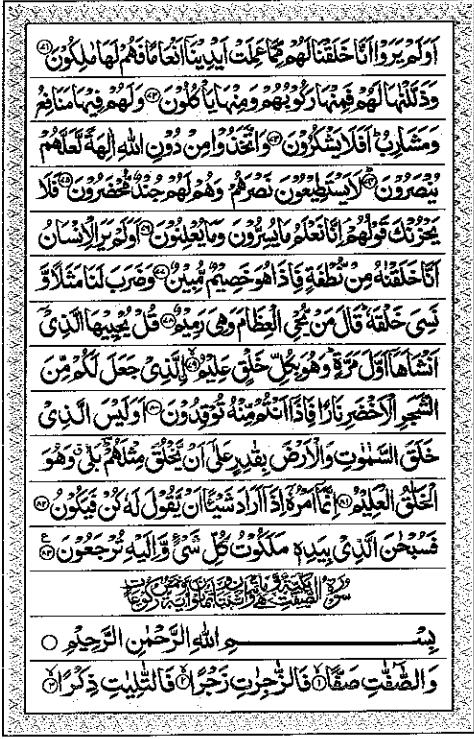 اَوَلَمۡ يَرَوۡا اَنَّا خَلَقۡنَا لَهُمۡ مِّمَّا عَمِلَتۡ اَيۡدِيۡنَاۤ اَنۡعَامًا فَهُمۡ لَهَا مٰلِكُوۡنَ ۷۱
وَذَلَّلۡنٰهَا لَهُمۡ فَمِنۡهَا رَكُوۡبُهُمۡ وَمِنۡهَا يَاۡكُلُوۡنَ ۷۲ وَلَهُمۡ فِيۡهَا مَنَافِعُ
وَمَشَارِبُ‌ؕ اَفَلَا يَشۡكُرُوۡنَ ۷۳ وَاتَّخَذُوۡا مِنۡ دُوۡنِ اللّٰهِ اٰلِهَةً لَّعَلَّهُمۡ
يُنۡصَرُوۡنَؕ ۷۴ لَا يَسۡتَطِيۡعُوۡنَ نَصۡرَهُمۡۙ وَهُمۡ لَهُمۡ جُنۡدٌ مُّحۡضَرُوۡنَ ۷۵ فَلَا
يَحۡزُنۡكَ قَوۡلُهُمۡ‌ۘ اِنَّا نَعۡلَمُ مَا يُسِرُّوۡنَ وَمَا يُعۡلِنُوۡنَ ۷۶ اَوَلَمۡ يَرَ الۡاِنۡسَانُ
اَنَّا خَلَقۡنٰهُ مِنۡ نُّطۡفَةٍ فَاِذَا هُوَ خَصِيۡمٌ مُّبِيۡنٌ ۷۷ وَضَرَبَ لَنَا مَثَلًا وَّ
نَسِىَ خَلۡقَهٗ‌ؕ قَالَ مَنۡ يُّحۡىِ الۡعِظَامَ وَهِىَ رَمِيۡمٌ ۷۸ قُلۡ يُحۡيِيۡهَا الَّذِىۡۤ
اَنۡشَاَهَاۤ اَوَّلَ مَرَّةٍ‌ؕ وَهُوَ بِكُلِّ خَلۡقٍ عَلِيۡمُۙ ۷۹ اۨلَّذِىۡ جَعَلَ لَكُمۡ مِّنَ
الشَّجَرِ الۡاَخۡضَرِ نَارًا فَاِذَاۤ اَنۡتُمۡ مِّنۡهُ تُوۡقِدُوۡنَ ۸۰ اَوَلَيۡسَ الَّذِىۡ
خَلَقَ السَّمٰوٰتِ وَالۡاَرۡضَ بِقٰدِرٍ عَلٰٓى اَنۡ يَّخۡلُقَ مِثۡلَهُمۡؔؕ بَلٰى وَهُوَ
الۡخَلّٰقُ الۡعَلِيۡمُ ۸۱ اِنَّمَاۤ اَمۡرُهٗۤ اِذَاۤ اَرَادَ شَيۡـًٔـا اَنۡ يَّقُوۡلَ لَهٗ كُنۡ فَيَكُوۡنُ ۸۲
فَسُبۡحٰنَ الَّذِىۡ بِيَدِهٖ مَلَكُوۡتُ كُلِّ شَىۡءٍ وَّاِلَيۡهِ تُرۡجَعُوۡنَ ۸۳
بِسۡمِ اللّٰهِ الرَّحۡمٰنِ الرَّحِيۡمِ
وَالصّٰٓفّٰتِ صَفًّاۙ ۱ فَالزّٰجِرٰتِ زَجۡرًاۙ ۲ فَالتّٰلِيٰتِ ذِكۡرًاۙ ۳